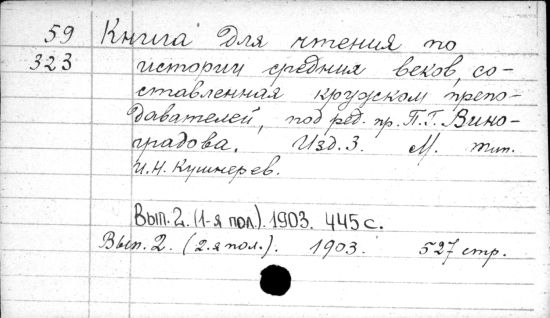 59 Книга для чтения по
323 истории средних веков, со-
ставленная кружком препо-
давателей, под ред. пр. П.Г. Вино-
градова. Изд. 3. М. тип.
И.Н. Кушнерев.
Вып. 2. (1-я пол.). 1903. 445 с.
Вып. 2. (2.я пол.). 1903. 527 стр.